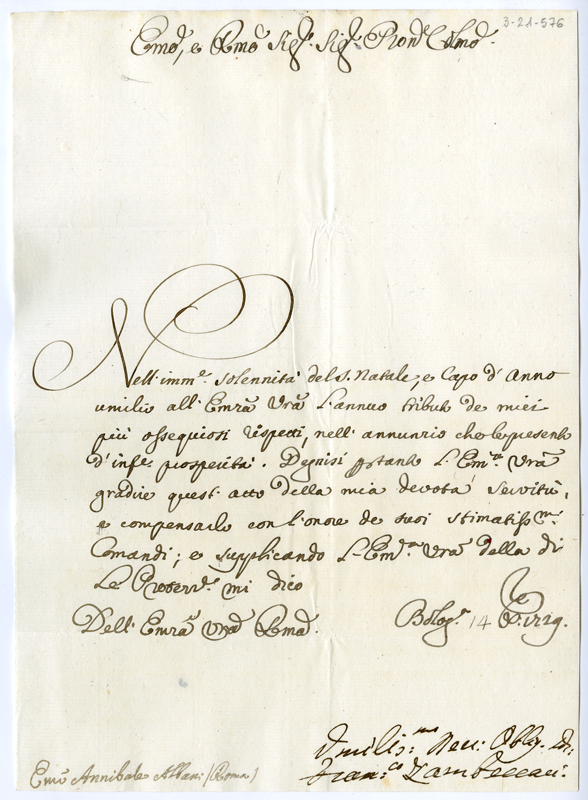 3-21-576
Emō, e Rmō Sig.r Sig.r Pron.e Colmō.
Nell'imm.te solennità del S. Natale, e Capo d'Anno
umilio all'Emza Vra l'annuo tributo de miei
più ossequiosi rispetti, nell'annunzio che le presento
d'infe. prosperità. Degnisi pertanto l'Em.za Vra
gradire quest'atto della mia devota servitù,
e compensarlo con l'onore de suoi stimatiss.mi
Comandi; e supplicando l'Em.za Vra della di
Le Protez.ne mi dico
Dell'Emza Vra Rma.
Bolog.a 14 1729.
Umiliss.mo Dev. Obblig.
Fran.co Zambeccari.
Emō Annibale Albani (Roma)